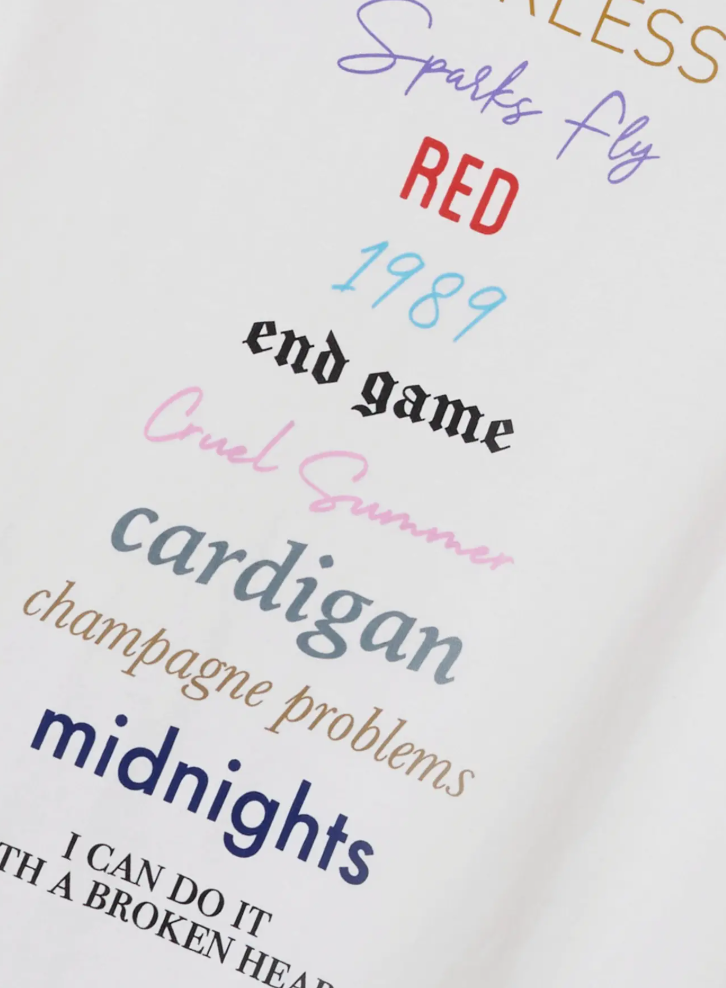 RLESS
Sparks fly
RED
1989
end game
Cruel Summer
cardigan
champagne problems
midnights
I CAN DO IT
TH A BROKEN HEAR